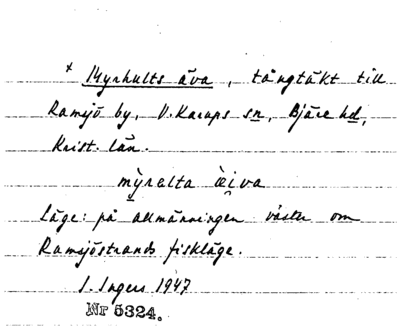 x Myrhults äva, tångtäkt till
Ramsjö by, V. Karups sn, Bjäre hd,
Krist. län.
my̖ralta èi̯va
Läge: på allmänningen väster om
Ramsjöstrands fiskläge.
I. Ingers 1947
Nr 5324.